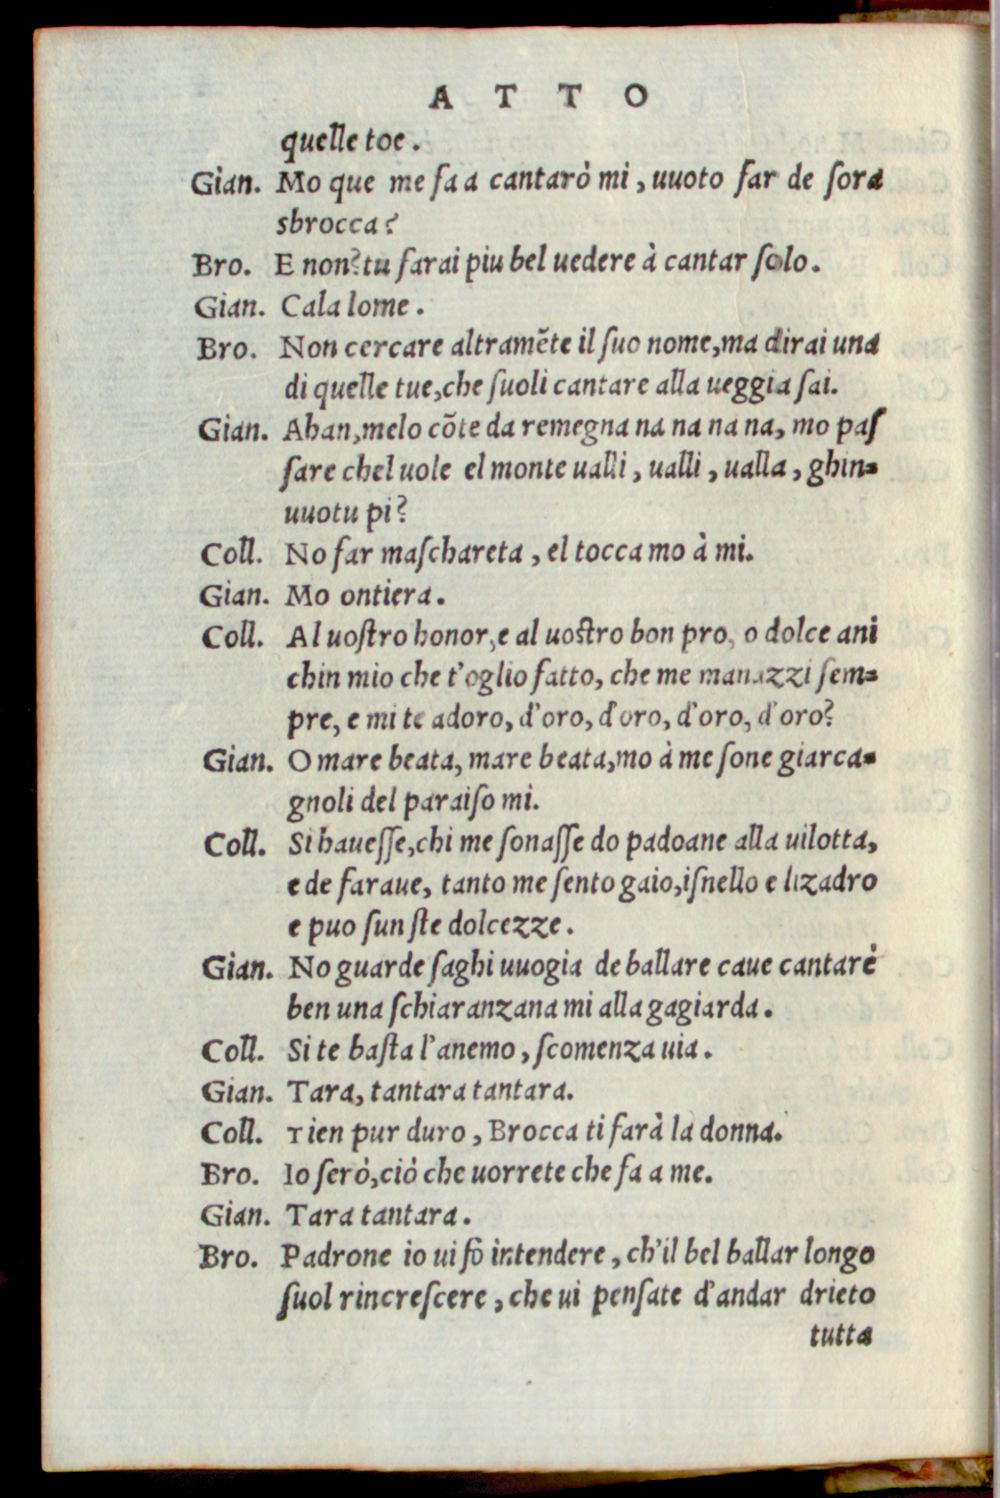 ATTO
quelle toe.
Gian. Mo que me sa a cantarò mi, vuoto far de sora
sbrocca?
Bro. E non? tu farai piu bel uedere à cantar solo.
Gian. Cala lome.
Bro. Non cercare altramẽte il suo nome, ma dirai una
di quelle tue, che suoli cantare alla ueggia sai.
Gian. Ahan, melo cõte da remegna na na na na, mo pas
sare chel uole el monte ualli, ualli, ualla, ghin-
uuotu pi?
Coll. No far maschareta, el tocca mo à mi.
Gian. Mo ontiera.
Coll. Al uostro honor, e al uostro bon pro, o dolce ani
chin mio che t'oglio fatto, che me manazzi sem-
pre, e mi te adoro, d'oro, d'oro, d'oro, d'oro?
Gian. O mare beata, mare beata, mo à me sone giarca-
gnoli del paraiso mi.
Coll. Si hauesse, chi me sonasse do padoane alla uilotta,
e de faraue, tanto me sento gaio, isnello e lizadro
e puo sun ste dolcezze.
Gian. No guarde saghi uuogia de ballare caue cantarè
ben una schiaranzana mi alla gagiarda.
Coll. Si te basta l'anemo, scomenza uia.
Gian. Tara, tantara tantara.
Coll. Tien pur duro, Brocca ti farà la donna.
Bro. Io serò, ciò che uorrete che fa a me.
Gian. Tara tantara.
Bro. Padrone io ui fò intendere, ch'il bel ballar longo
suol rincrescere, che ui pensate d'andar drieto
tutta